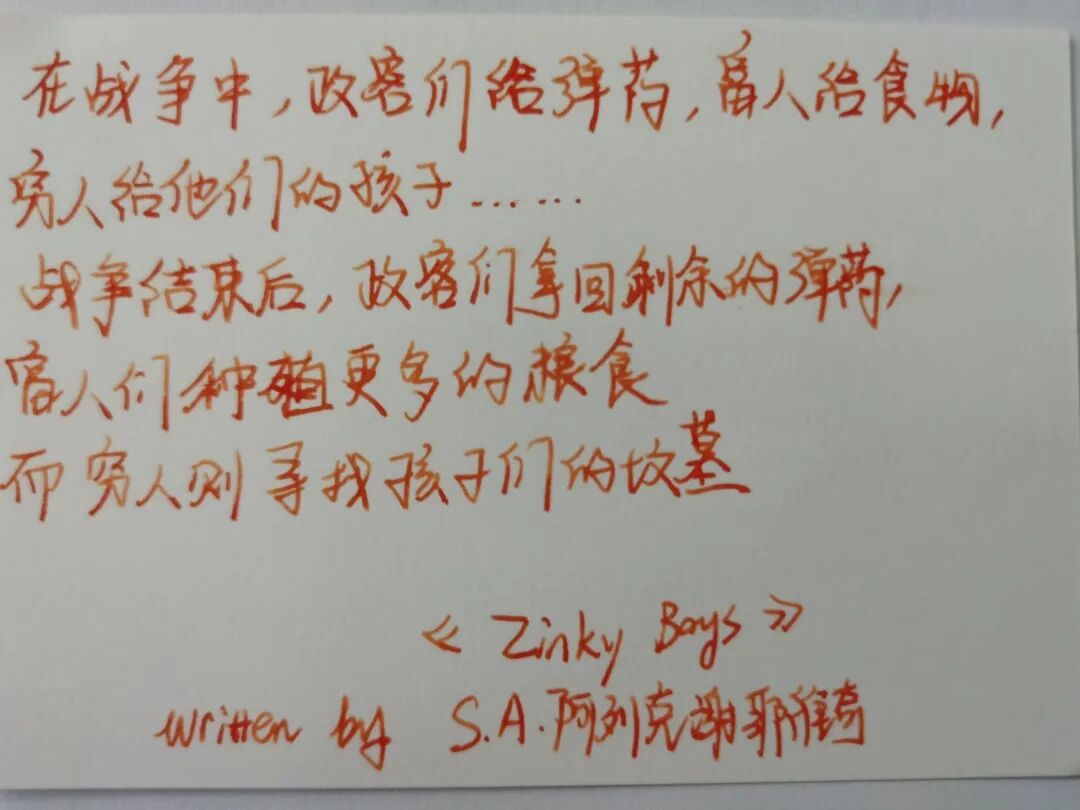 在战争中，政客们给弹药，富人给食物，
穷人给他们的孩子……
战争结束后，政客们拿回剩余的弹药，
富人们种植更多的粮食
而穷人则寻找孩子们的坟墓
《Zinky Boys》
written by S.A.阿列克谢耶维奇